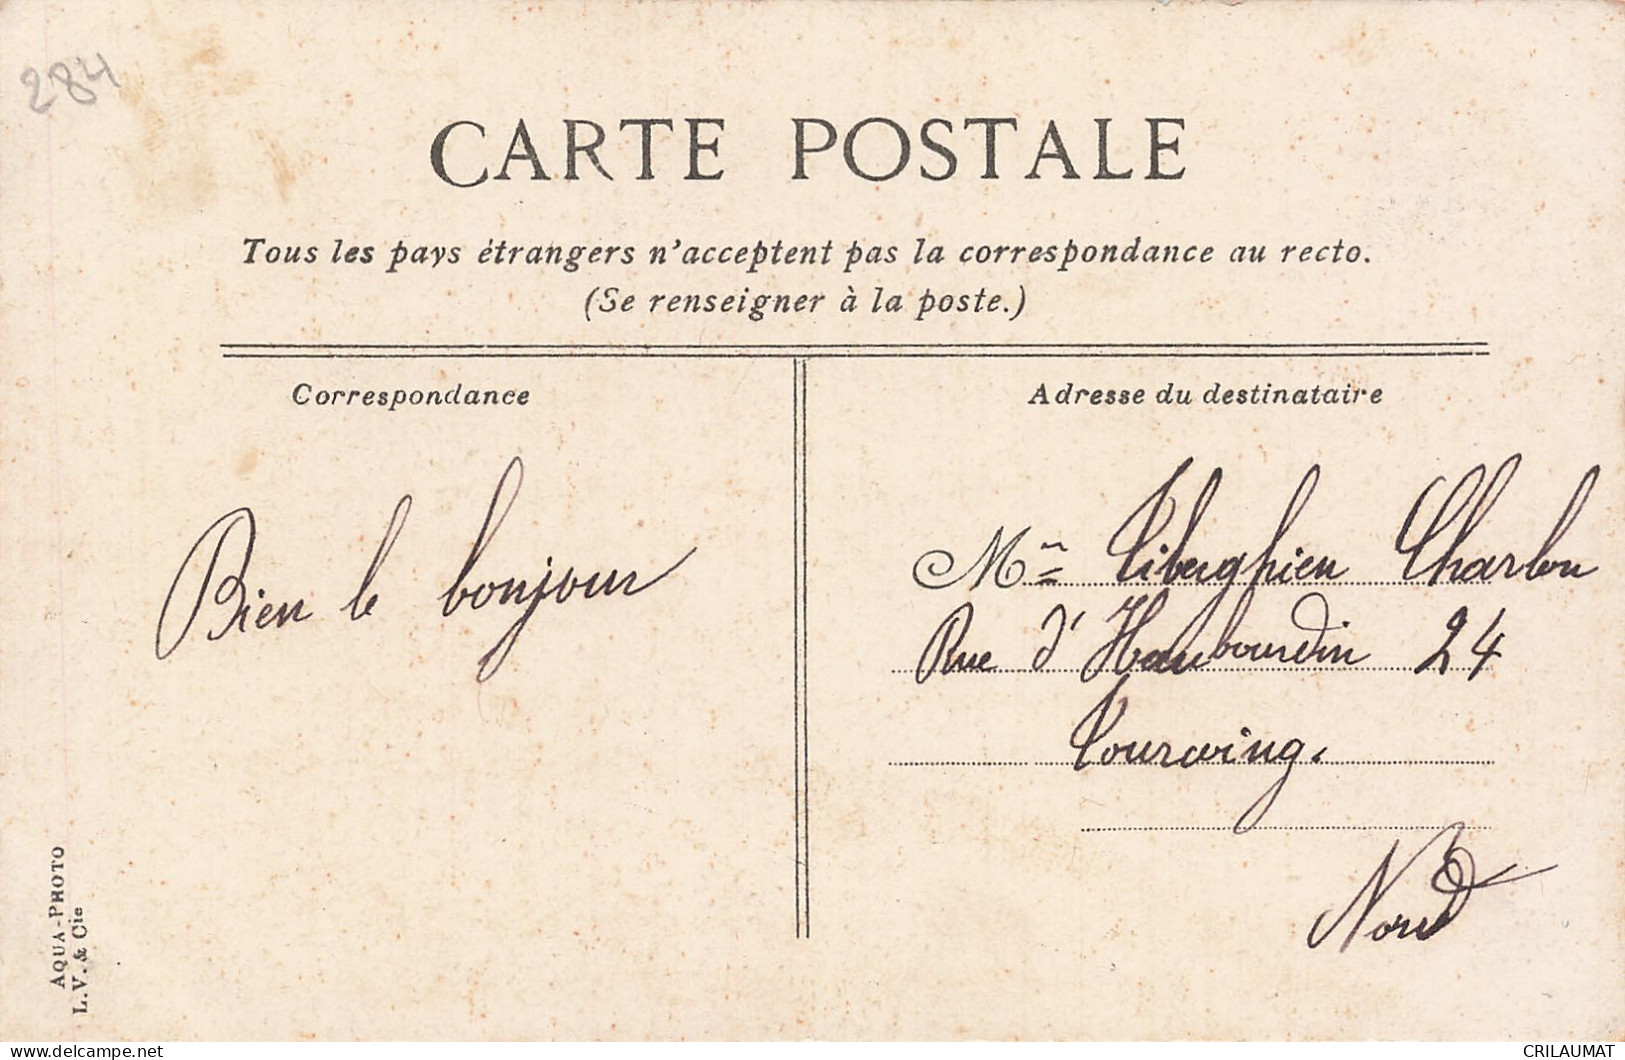 284
CARTE POSTALE
Tous les pays étrangers n'acceptent pas la correspondance au recto.
(Se renseigner à la poste.)
Correspondance
Bien le bonjour
Adresse du destinataire
Mme Tiberghien Charlon
Rue d'Haubourdin 24
Tourcoing.
Nord
AQUA-PHOTO
L.V. & Cie
delcampe.net
CRILAUMAT